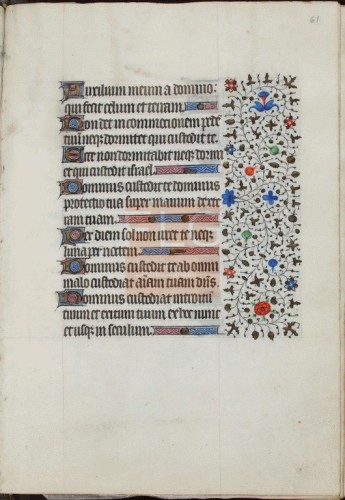 61
Auxilium meum a domino:
qui fecit celum et terram.
Non det in commocionem pede
tuum: neq dormitet qui custodit te.
Ecce non dormitabit neq dormi
et qui custodit israel.
Dominus custodit te dominus
protectio tua super manum dexte
ram tuam.
Per diem sol non uret te neq
luna per noctem.
Dominus custodit te ab omni
malo custodiat aiam tuam dns.
Dominus custodiat introitu
tuum et exitum tuum ex hoc nunc
et usq in seculum.